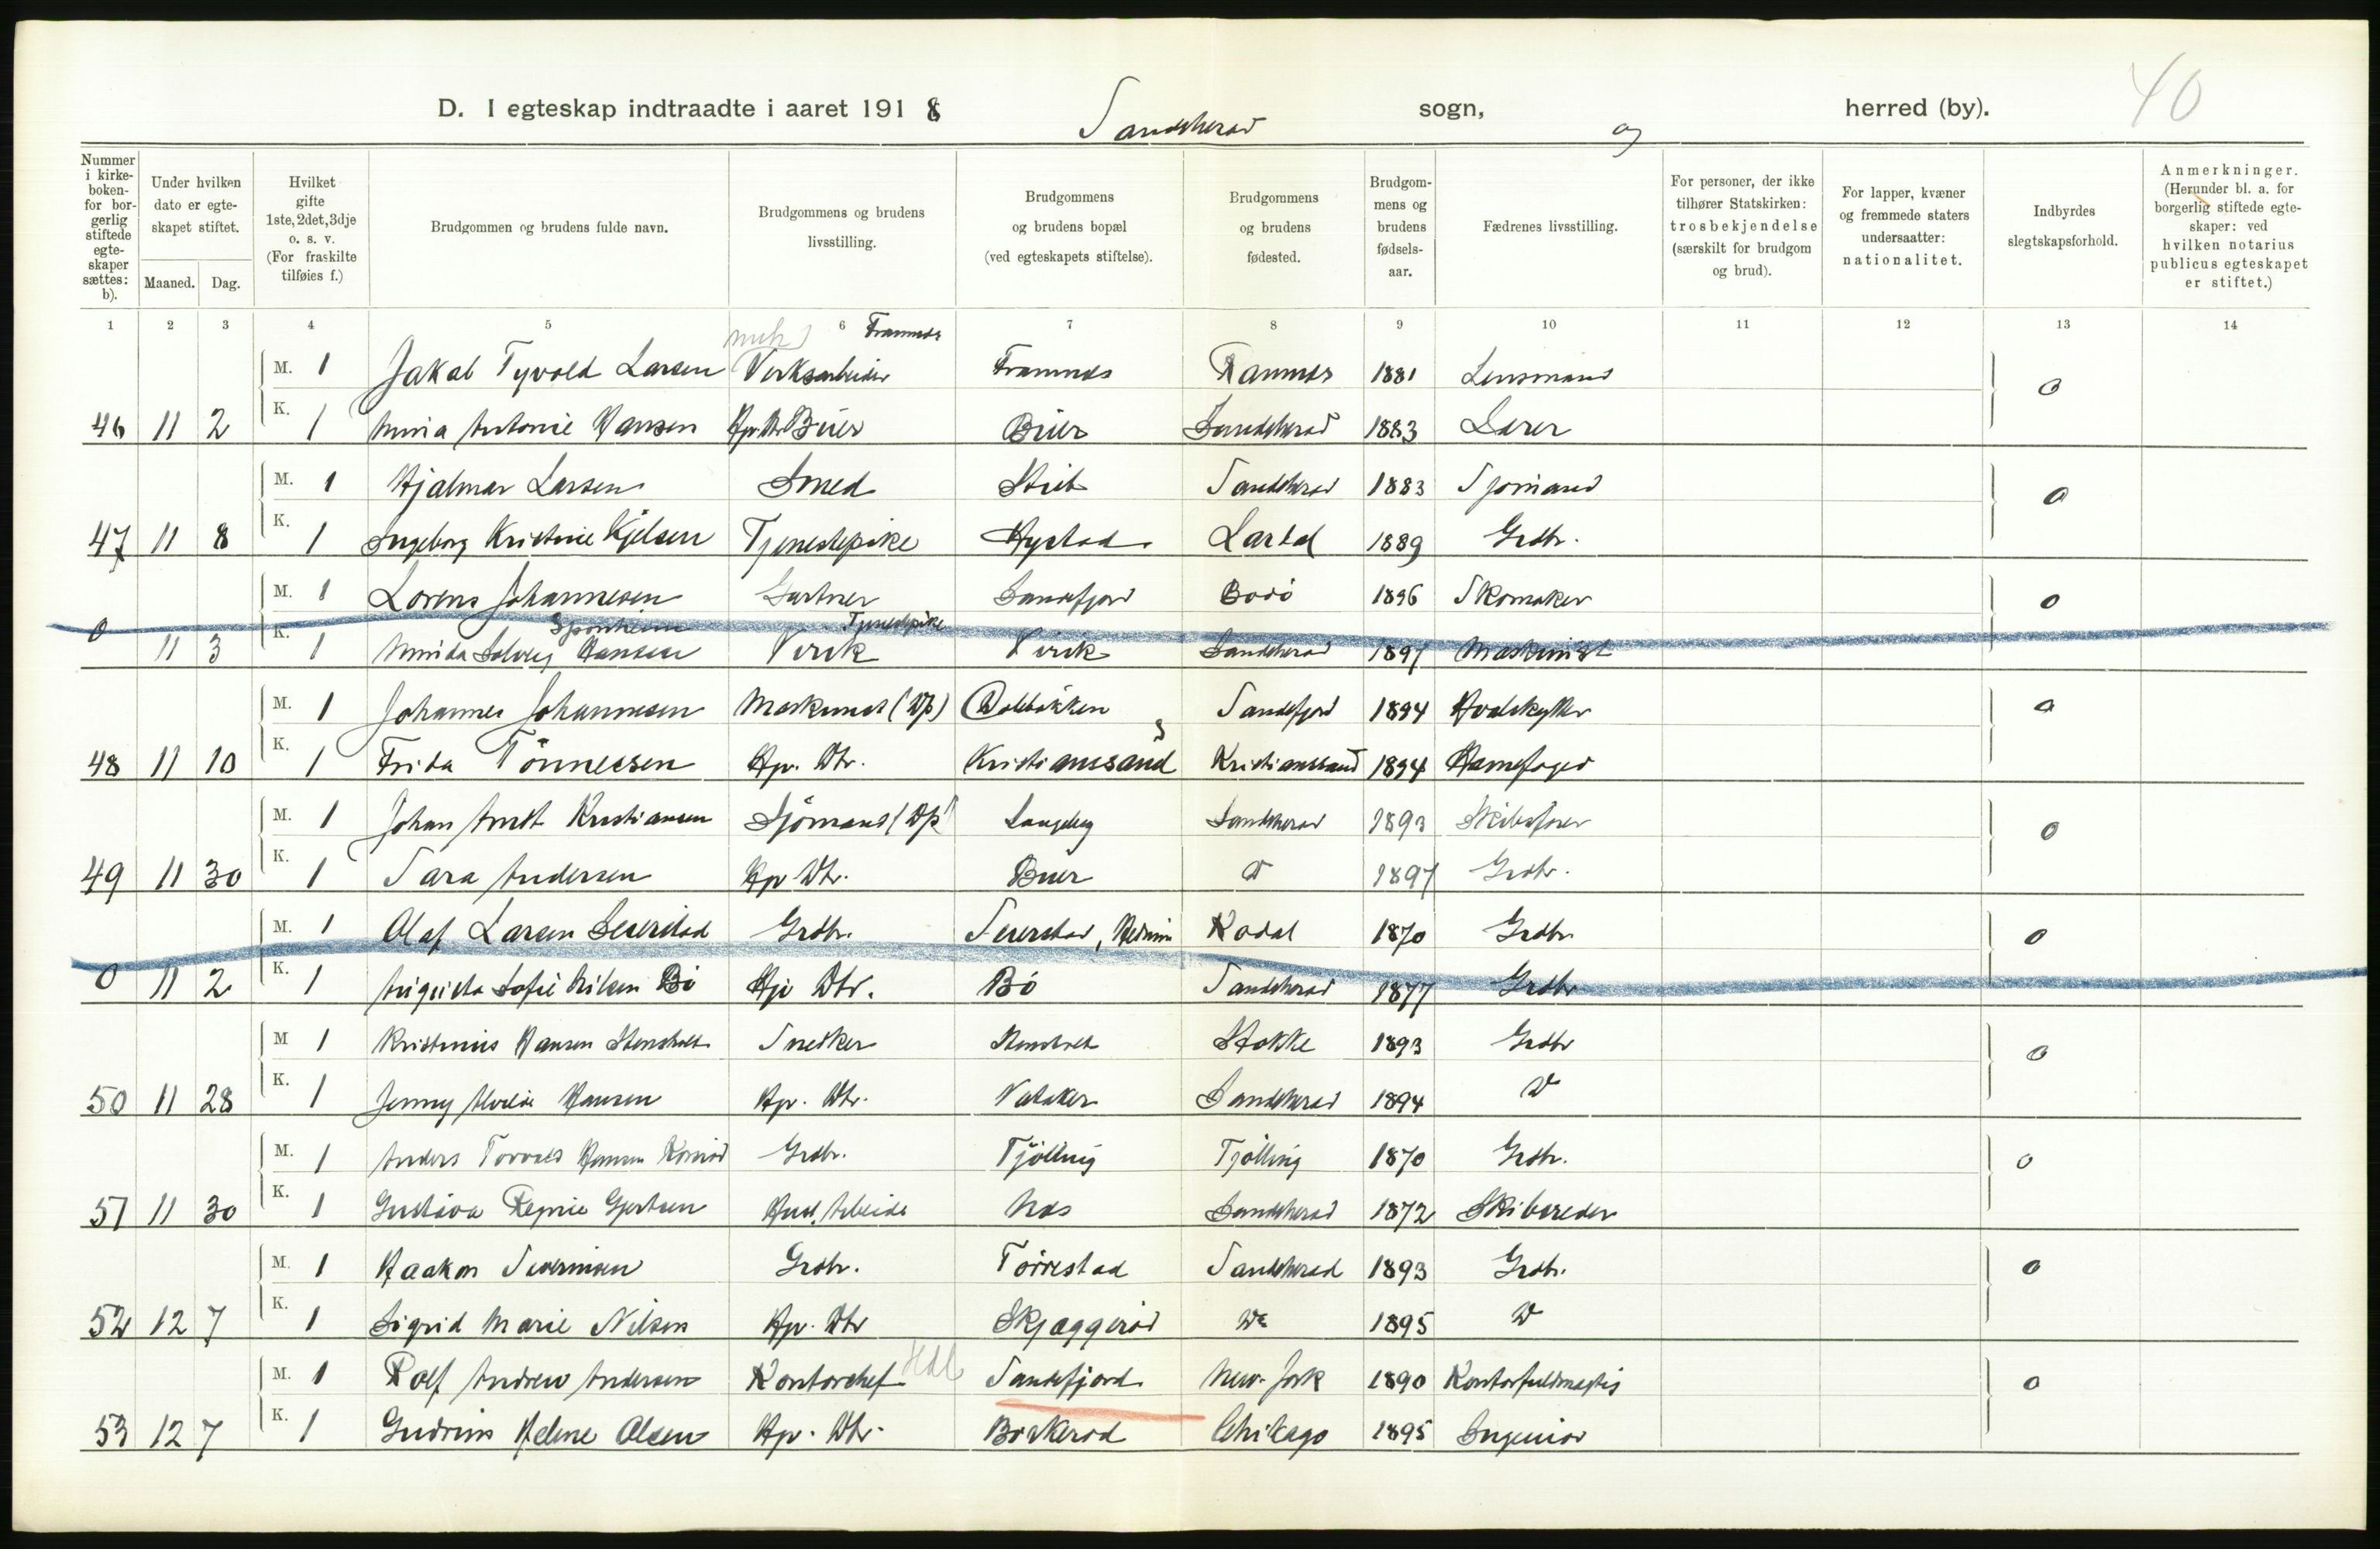 40
D. I egteskap indtraadte i aaret 1918 Sandeherad sogn, og herred (by).
Nummer i kirke-boken- for bor-gerlig stiftede egte-skaper sættes: b).
Under hvilken dato er egte-skapet stiftet.
Maaned. Dag.
Hvilket gifte 1ste, 2det, 3dje o. s. v. (For fraskilte tilføies f.)
Brudgommen og brudens fulde navn.
Brudgommens og brudens livsstilling.
Brudgommens og brudens bopæl (ved egteskapets stiftelse).
Brudgommens og brudens fødested.
Brudgom-mens og brudens fødsels-aar.
Fædrenes livsstilling.
For personer, der ikke tilhører Statskirken: trosbekjendelse (særskilt for brudgom og brud).
For lapper, kvæner og fremmede staters undersaatter: nationalitet.
Indbyrdes slegtskapsforhold.
Anmerkninger. (Herunder bl. a. for borgerlig stiftede egte-skaper: ved hvilken notarius publicus egteskapet er stiftet.)
1 2 3 4 5 6 7 8 9 10 11 12 13 14
Framnes
M. 1 Jakob Tyvold Larsen Verksarbeider Framnes Ramnes 1881 Lensmand 0
46 11 2 K. 1 Antonie Hansen Buer Buer Sandeherad 1883 Lærer
M. 1 Hjalmar Larsen Smed Sandeherad 1883 Sjömand 0
47 11 8 K. 1 Ingeborg Kristine Kjelsen Tjenestepike Hystad Lardal 1889 Grdbr.
M. 1 Lorens Johannesen Gartner Sandefjord Bodö 1896 Skomaker 0
Tjenestepike
0 11 3 K. 1 Solveig Hansen Virik Virik Sandeherad 1897 Maskinist
M. 1 Johannes Johannesen Maskinist Sandefjord 1894 Hvalskytter 0
48 11 10 K. 1 Frida Tönnessen Hj. Dtr. Kristianssand Kristianssand 1894 Havnefoged
M. 1 Johan Arndt Kristiansen Sjömand Langeby Sandeherad 1893 Skibsfører 0
49 11 30 K. 1 Sara Andersen Hj. Dtr. Buer D 1897 Grdbr.
M. 1 Olaf Larsen Seierstad Grdbr. Seierstad, Kodal 1870 Grdbr. 0
0 11 2 K. 1 Augusta Sofie Nilsen Bö Hj. Dtr. Bö Sandeherad 1877 Grdbr
M 1 Kristinius Hansen Stensholt Snedker Stensholt Stokke 1893 Grdbr 0
50 11 28 K. 1 Jenny Hansen Hj. Dtr. Sandeherad 1894 D
M. 1 Anders Torvald Hansen Grdbr. Tjölling Tjölling 1870 Grdbr. 0
51 11 30 K. 1 Gustava Regine Gjertsen Hus. Arbeide Nes Sandeherad 1872 Skibsreder
M. 1 Haakon Severinsen Grdbr. Torrestad Sandeherad 1893 Grdbr. 0
52 12 7 K. 1 Sigrid Marie Nilsen Hj. Dtr Skjæggeröd Do 1895 D
M. 1 Rolf Andrew Andersen Kontorchef Sandefjord New-York 1890 Kontorfuldmægtig 0
53 12 7 K. 1 Gudrun Helene Olsen Hj. Dtr. Chikago 1895 Ingeniör